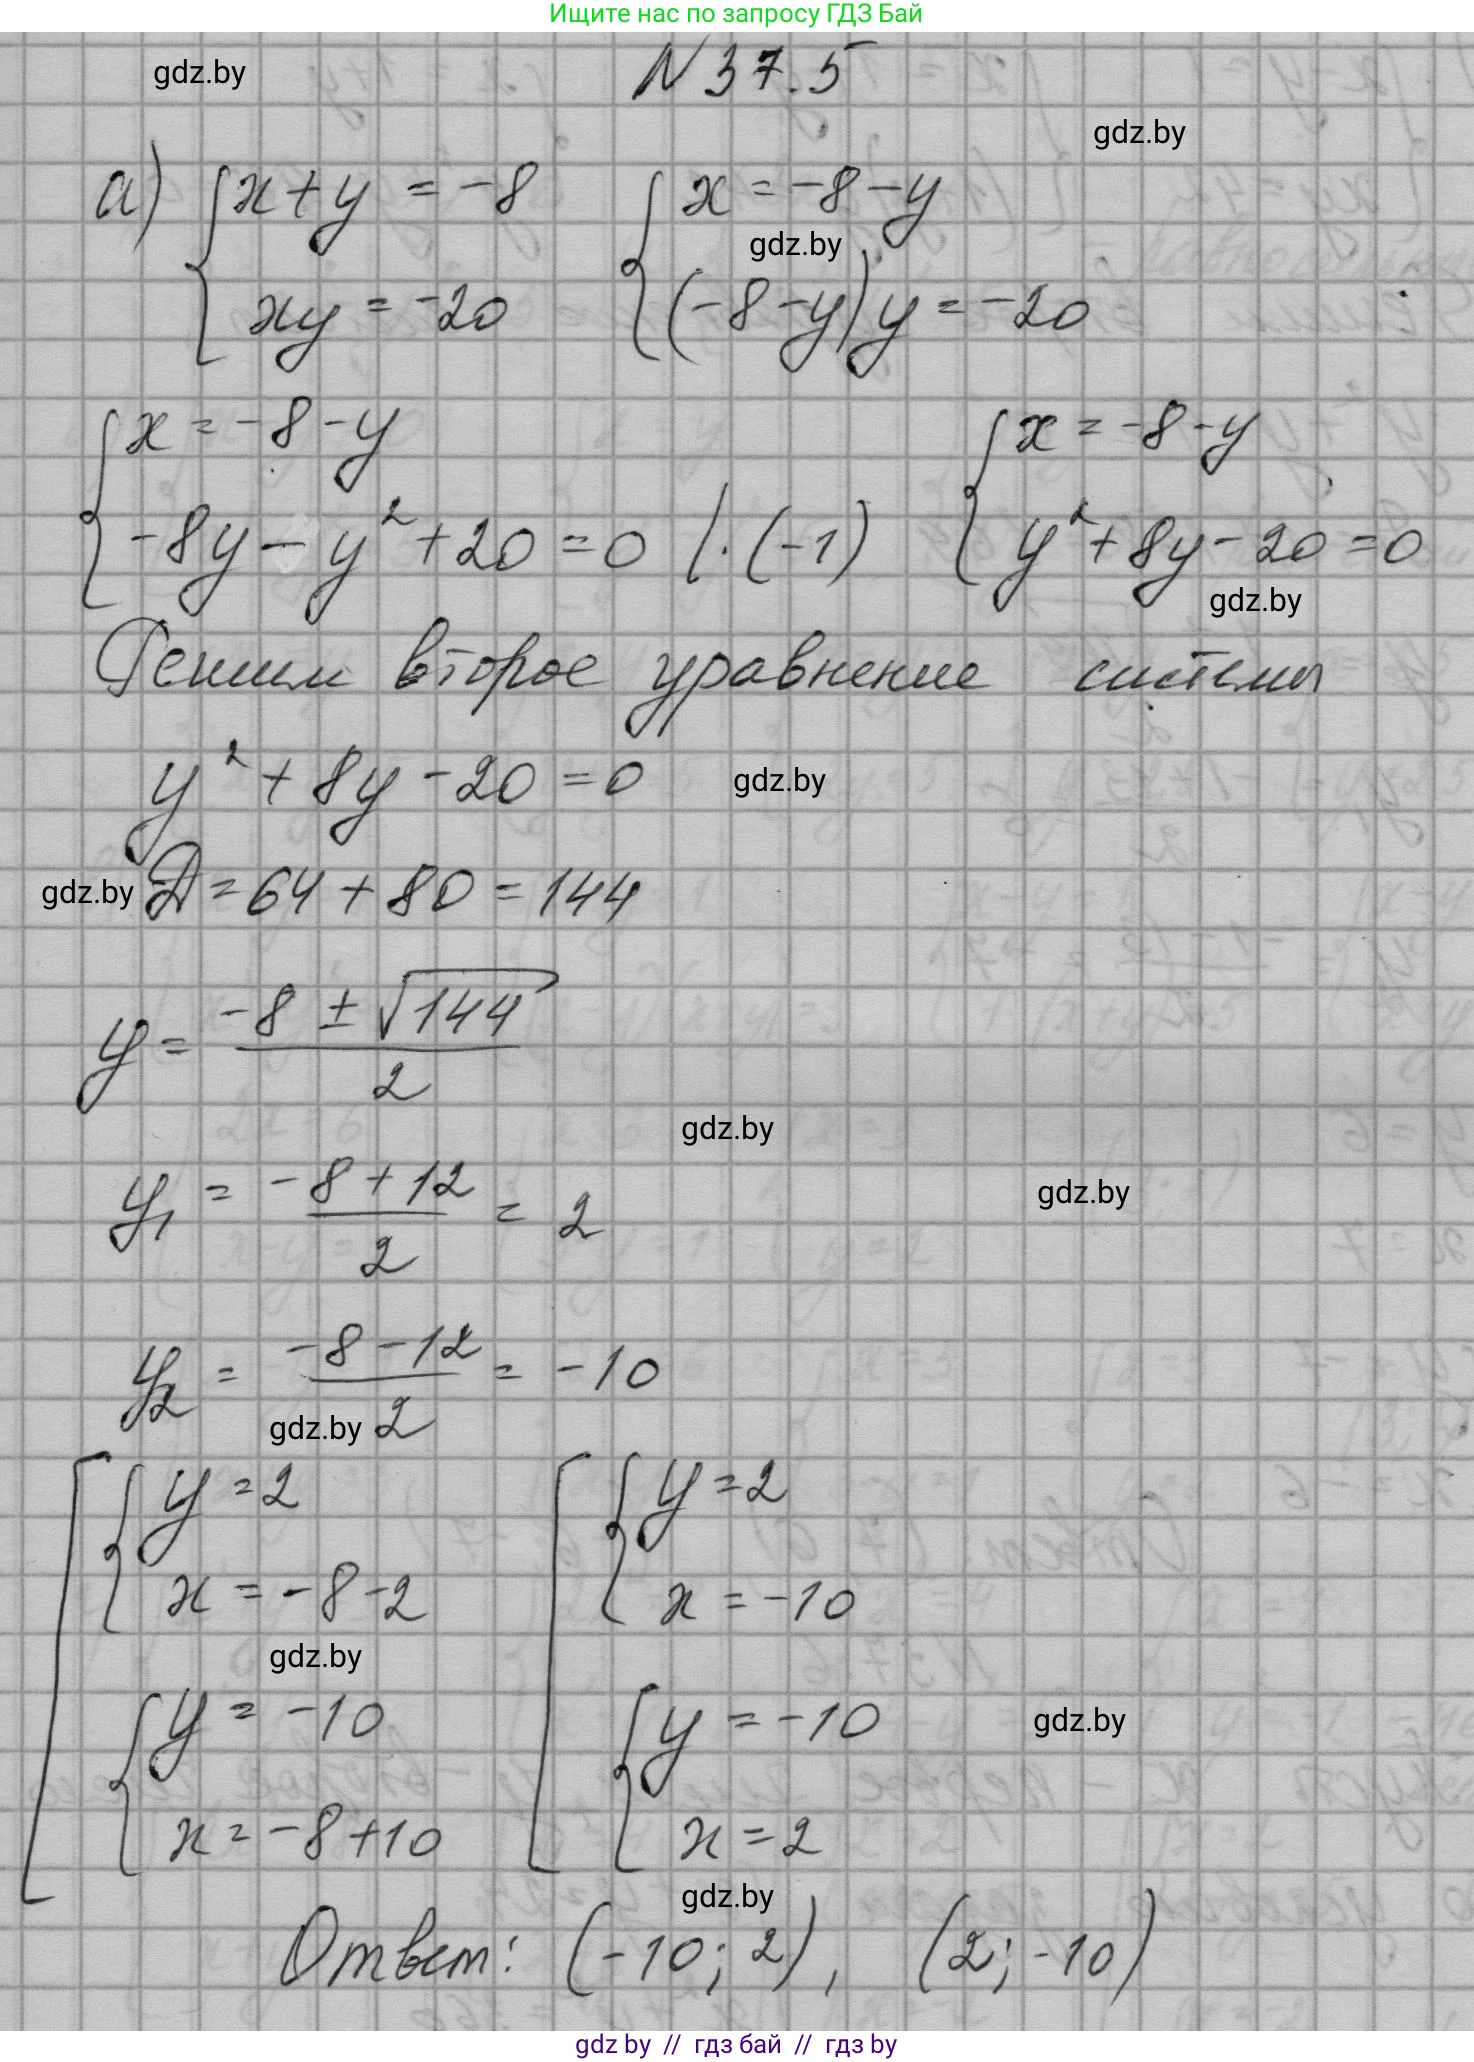 Ищите нас по запросу ГДЗ Бай
gdz.by
N 37.5
gdz.by
а) { x+y = -8 { x = -8-y
gdz.by
xy = -20 (-8-y)y = -20
{ x = -8-y { x = -8-y
-8y - y² + 20 = 0 |·(-1) y² + 8y - 20 = 0
gdz.by
Решим второе уравнение системы
y² + 8y - 20 = 0
gdz.by
gdz.by
Д = 64 + 80 = 144
y = (-8 ± √144)/2
gdz.by
y₁ = (-8+12)/2 = 2
gdz.by
y₂ = (-8-12)/2 = -10
gdz.by
[ { y = 2 [ { y = 2
x = -8-2 x = -10
gdz.by
{ y = -10 { y = -10
gdz.by
x = -8+10 x = 2
gdz.by
Ответ: (-10; 2), (2; -10)
gdz by // гдз бай // гдз by